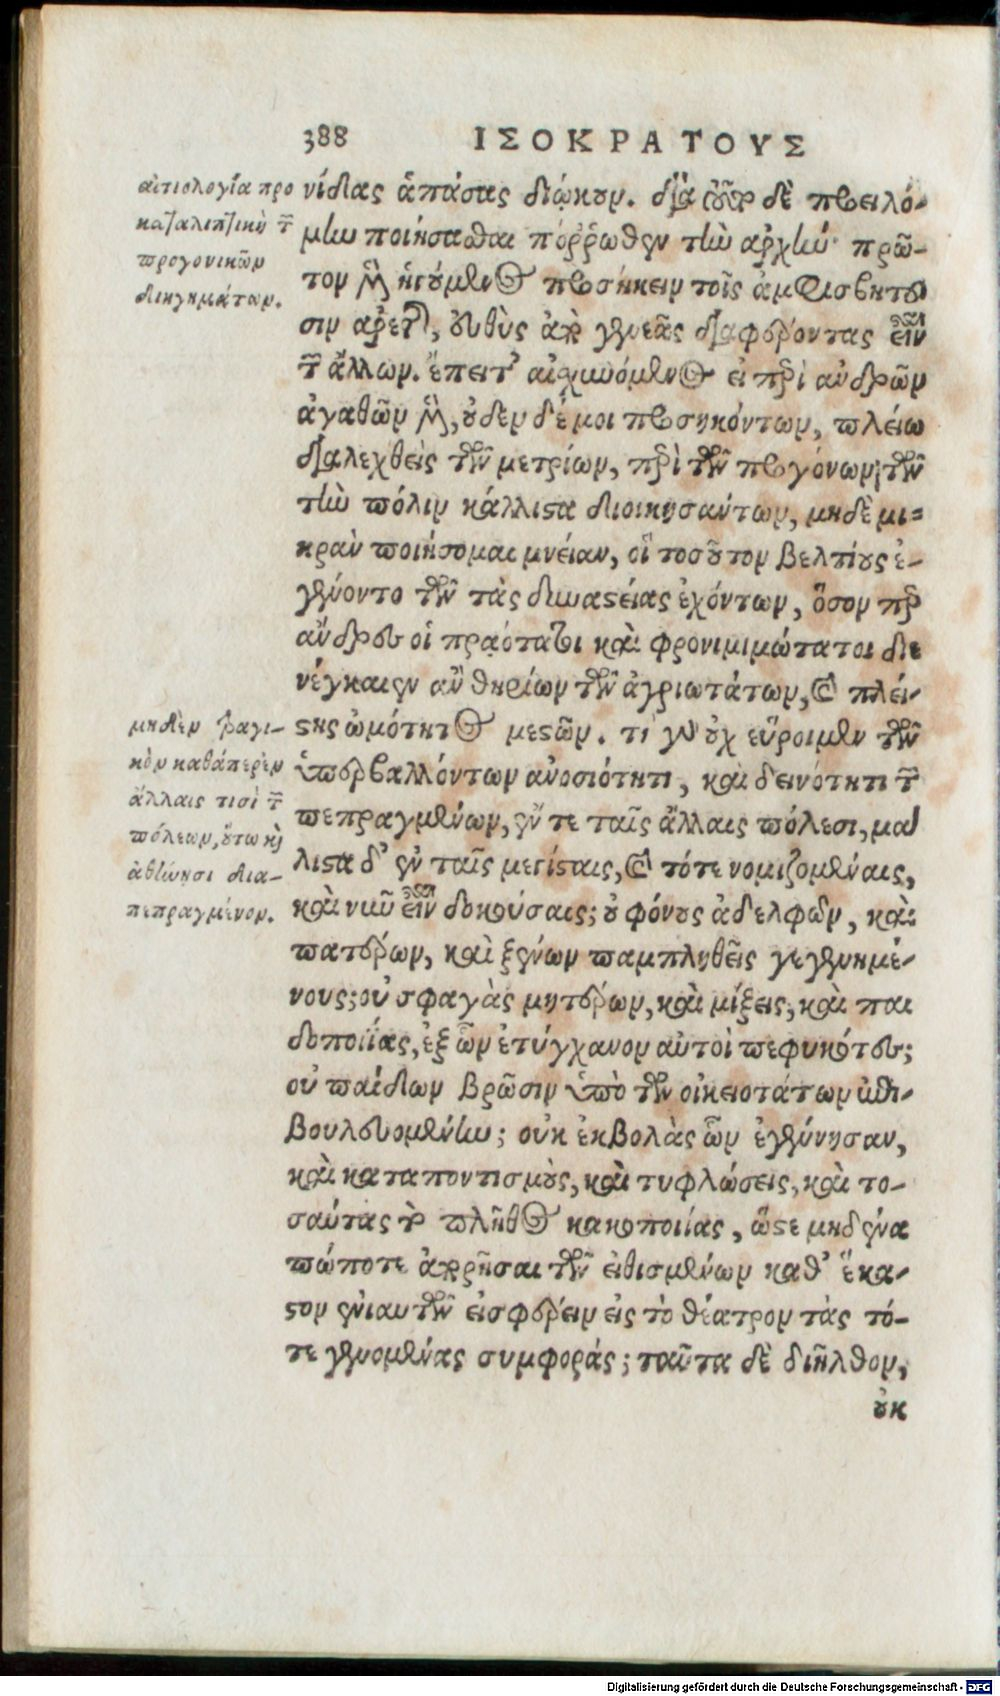 388 ΙΣΟΚΡΑΤΟΥΣ
αἰτιολογία προ
καταληπτικὴ τῶν
προγονικῶν
διηγημάτων.
νίδιας ἁπάσας διῴκουν. διὰ τοῦτο δὲ προειλό-
μην ποιήσασθαι πόῤῥωθεν τὴν ἀρχὴν· πρῶ-
τον μὲν ἡγούμενος προσήκειν τοῖς ἀμφισβητοῦ
σιν ἀρετῆς, εὐθὺς ἀπὸ γενεᾶς διαφέροντας εἶναι
τῶν ἄλλων. ἔπειτ' αἰσχυνόμενος εἰ περὶ ἀνδρῶν
ἀγαθῶν μὲν, οὐδεν δέ μοι προσηκόντων, πλείω
διαλεχθεὶς τῶν μετρίων, περὶ τῶν προγόνων τῶν
τὴν πόλιν κάλλιστα διοικησάντων, μηδὲ μι-
κρὰν ποιήσομαι μνείαν, οἳ τοσοῦτον βελτίους ἐ-
γένοντο τῶν τὰς δυναστείας ἐχόντων, ὅσον περ
ἄνδρες οἱ πραότατοι καὶ φρονιμιμώτατοι διε
νέγκαιεν ἂν θηρίων τῶν ἀγριωτάτων, καὶ πλεί-
στης ὠμότητος μεστῶν. τί γὰρ οὐχ εὕροιμεν τῶν
μηδὲν τραγι-
κὸν καθάπερ ἐν
ἄλλαις τισὶ τῶν
πόλεων, οὕτω καὶ
ἀθήνησι δια-
πεπραγμένον.
ὑπερβαλλόντων ἀνοσιότητι, καὶ δεινότητι τῶν
πεπραγμένων, ἔν τε ταῖς ἄλλαις πόλεσι, μά
λιστα δ' ἐν ταῖς μεγίσταις, καὶ τότε νομιζομέναις,
καὶ νῦν εἶναι δοκούσαις; οὐ φόνους ἀδελφῶν, καὶ
πατέρων, καὶ ξένων παμπληθεῖς γεγενημέ-
νους; οὐ σφαγὰς μητέρων, καὶ μίξεις, καὶ παι
δοποιίας, ἐξ ὧν ἐτύγχανον αὐτοὶ πεφυκότες;
οὐ παίδων βρῶσιν ὑπὸ τῶν οἰκειοτάτων ἐπι-
βουλευομένην; οὐκ ἐκβολὰς ὧν ἐγέννησαν,
καὶ καταποντισμοὺς, καὶ τυφλώσεις, καὶ το-
σαύτας τὸ πλῆθος κακοποιίας, ὥστε μηδένα
πώποτε ἀπορῆσαι τῶν εἰθισμένων καθ' ἕκα-
στον ἐνιαυτὸν εἰσφέρειν εἰς τὸ θέατρον τὰς τό-
τε γενομένας συμφοράς; ταῦτα δὲ διῆλθον,
οὐκ
Digitalisierung gefördert durch die Deutsche Forschungsgemeinschaft - DFG